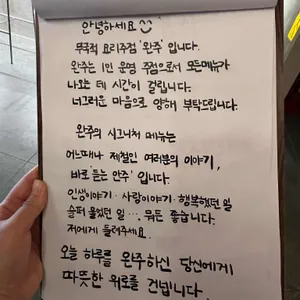 안녕하세요
무국적 요리주점 '완주' 입니다.
완주는 1인 운영 주점으로서 모든메뉴가
나오는 데 시간이 걸립니다.
너그러운 마음으로 양해 부탁드립니다.
완주의 시그니처 메뉴는
어느때나 제철인 여러분의 이야기,
바로 '듣는 안주' 입니다.
인생이야기 · 사랑이야기 · 행복했던 일
슬퍼 울었던 일 … 뭐든 좋습니다.
저에게 들려주세요.
오늘 하루를 완주하신 당신에게
따뜻한 위로를 건넵니다